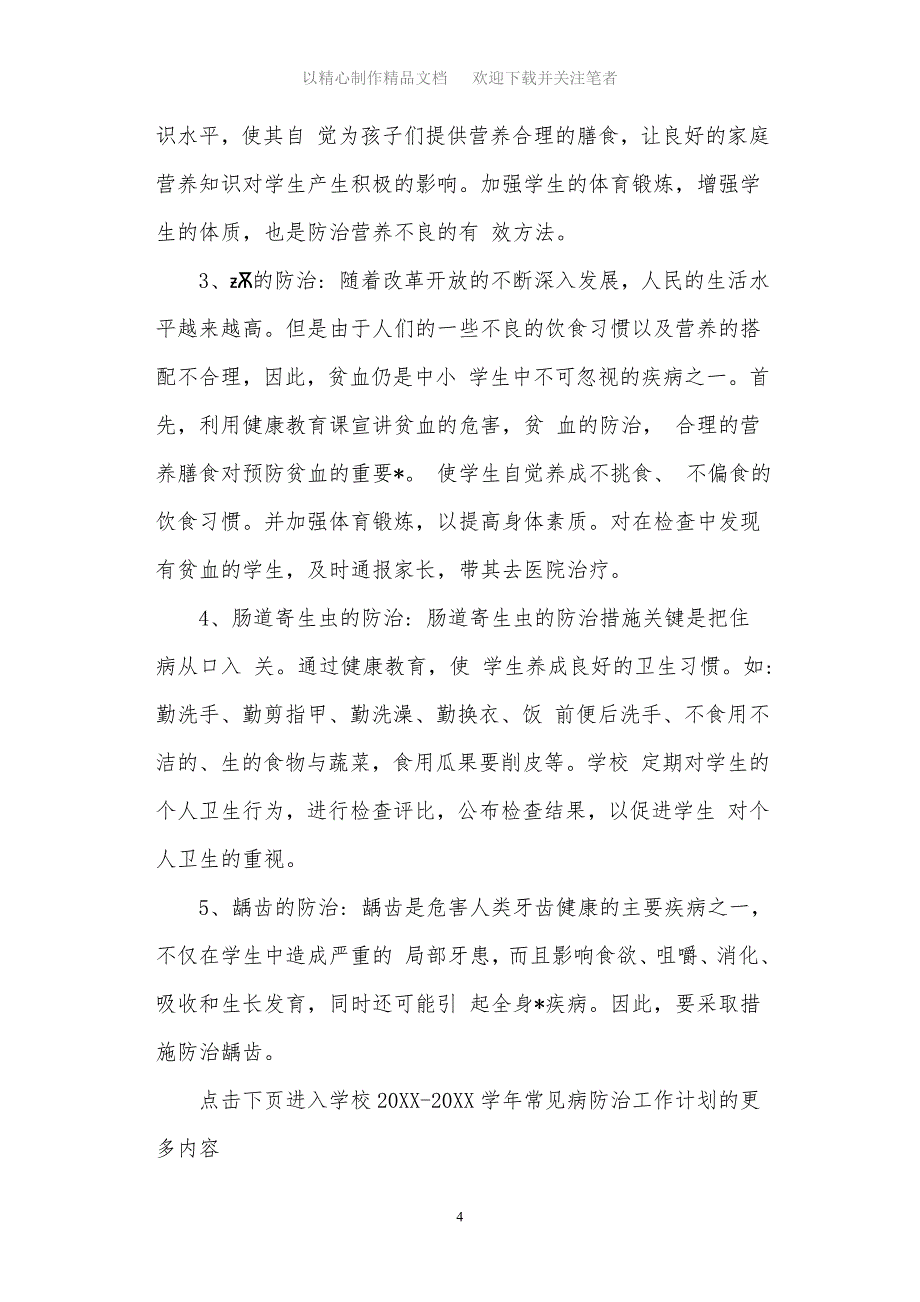 以精心制作精品文档 欢迎下载并关注笔者
识水平，使其自 觉为孩子们提供营养合理的膳食，让良好的家庭
营养知识对学生产生积极的影响。加强学生的体育锻炼，增强学
生的体质，也是防治营养不良的有 效方法。
3、的防治：随着改革开放的不断深入发展，人民的生活水
平越来越高。但是由于人们的一些不良的饮食习惯以及营养的搭
配不合理，因此，贫血仍是中小 学生中不可忽视的疾病之一。首
先，利用健康教育课宣讲贫血的危害，贫 血的防治， 合理的营
养膳食对预防贫血的重要*。 使学生自觉养成不挑食、 不偏食的
饮食习惯。并加强体育锻炼，以提高身体素质。对在检查中发现
有贫血的学生，及时通报家长，带其去医院治疗。
4、肠道寄生虫的防治：肠道寄生虫的防治措施关键是把住
病从口入 关。通过健康教育，使 学生养成良好的卫生习惯。如：
勤洗手、勤剪指甲、勤洗澡、勤换衣、饭 前便后洗手、不食用不
洁的、生的食物与蔬菜，食用瓜果要削皮等。学校 定期对学生的
个人卫生行为，进行检查评比，公布检查结果，以促进学生 对个
人卫生的重视。
5、龋齿的防治：龋齿是危害人类牙齿健康的主要疾病之一，
不仅在学生中造成严重的 局部牙患，而且影响食欲、咀嚼、消化、
吸收和生长发育，同时还可能引 起全身*疾病。因此，要采取措
施防治龋齿。
点击下页进入学校20XX-20XX学年常见病防治工作计划的更
多内容
4